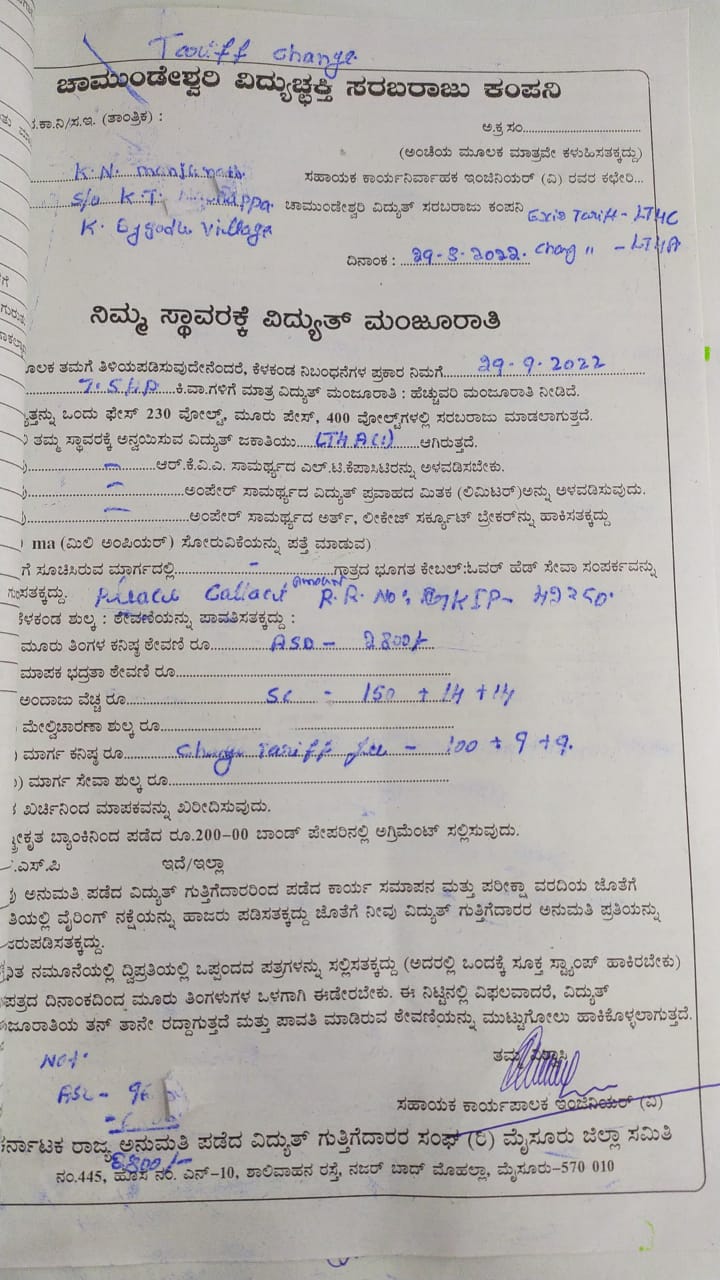 Tariff change
ಚಾಮುಂಡೇಶ್ವರಿ ವಿದ್ಯುಚ್ಛಕ್ತಿ ಸರಬರಾಜು ಕಂಪನಿ
ಕಾ.ನಿ/ಸ.ಇ. (ತಾಂತ್ರಿಕ) :
ಅ.ಕ್ರ ಸಂ.
(ಅಂಚೆಯ ಮೂಲಕ ಮಾತ್ರವೇ ಕಳುಹಿಸತಕ್ಕದ್ದು)
K.N. manjunath ಸಹಾಯಕ ಕಾರ್ಯನಿರ್ವಾಹಕ ಇಂಜಿನಿಯರ್ (ವಿ) ರವರ ಕಛೇರಿ...
S/o K.T. ಚಾಮುಂಡೇಶ್ವರಿ ವಿದ್ಯುತ್ ಸರಬರಾಜು ಕಂಪನಿ Exis Tariff - LT4C
K. Village
ದಿನಾಂಕ : 29-8-2022 Chang " - LT4A
ನಿಮ್ಮ ಸ್ಥಾವರಕ್ಕೆ ವಿದ್ಯುತ್ ಮಂಜೂರಾತಿ
ತಮಗೆ ತಿಳಿಯಪಡಿಸುವುದೇನೆಂದರೆ, ಕೆಳಕಂಡ ನಿಬಂಧನೆಗಳ ಪ್ರಕಾರ ನಿಮಗೆ 29-9-2022
ಕಿ.ವಾ.ಗಳಿಗೆ ಮಾತ್ರ ವಿದ್ಯುತ್ ಮಂಜೂರಾತಿ : ಹೆಚ್ಚುವರಿ ಮಂಜೂರಾತಿ ನೀಡಿದೆ.
ಒಂದು ಫೇಸ್ 230 ವೋಲ್ಟ್, ಮೂರು ಪೇಸ್, 400 ವೋಲ್ಟ್‌ಗಳಲ್ಲಿ ಸರಬರಾಜು ಮಾಡಲಾಗುತ್ತದೆ.
ತಮ್ಮ ಸ್ಥಾವರಕ್ಕೆ ಅನ್ವಯಿಸುವ ವಿದ್ಯುತ್ ಜಕಾತಿಯು LT4A(1) ಆಗಿರುತ್ತದೆ.
ಆರ್.ಕೆ.ವಿ.ಎ. ಸಾಮರ್ಥ್ಯದ ಎಲ್.ಟಿ.ಕೆಪಾಸಿಟಿರನ್ನು ಅಳವಡಿಸಬೇಕು.
ಅಂಪೇರ್ ಸಾಮರ್ಥ್ಯದ ವಿದ್ಯುತ್ ಪ್ರವಾಹದ ಮಿತಕ (ಲಿಮಿಟರ್)ಅನ್ನು ಅಳವಡಿಸುವುದು.
ಅಂಪೇರ್ ಸಾಮರ್ಥ್ಯದ ಅರ್ತ್, ಲೀಕೇಜ್ ಸರ್ಕ್ಯೂಟ್ ಬ್ರೇಕರ್‌ನ್ನು ಹಾಕಿಸತಕ್ಕದ್ದು
ma (ಮಿಲಿ ಅಂಪಿಯರ್) ಸೋರುವಿಕೆಯನ್ನು ಪತ್ತೆ ಮಾಡುವ)
ಗೆ ಸೂಚಿಸಿರುವ ಮಾರ್ಗದಲ್ಲಿ - ಗಾತ್ರದ ಭೂಗತ ಕೇಬಲ್:ಓವರ್ ಹೆಡ್ ಸೇವಾ ಸಂಪರ್ಕವನ್ನು
amount R.R. No:
ಕೆಳಕಂಡ ಶುಲ್ಕ : ಠೇವಣಿಯನ್ನು ಪಾವತಿಸತಕ್ಕದ್ದು :
ಮೂರು ತಿಂಗಳ ಕನಿಷ್ಠ ಠೇವಣಿ ರೂ. ASD - 2800/-
ಮಾಪಕ ಭದ್ರತಾ ಠೇವಣಿ ರೂ.
ಅಂದಾಜು ವೆಚ್ಚ ರೂ. SC - 150 + 14 + 14
ಮೇಲ್ವಿಚಾರಣಾ ಶುಲ್ಕ ರೂ.
ಮಾರ್ಗ ಕನಿಷ್ಠ ರೂ. Tariff fee - 100 + 9 + 9.
ಮಾರ್ಗ ಸೇವಾ ಶುಲ್ಕ ರೂ.
ಖರ್ಚಿನಿಂದ ಮಾಪಕವನ್ನು ಖರೀದಿಸುವುದು.
ಬ್ಯಾಂಕಿನಿಂದ ಪಡೆದ ರೂ.200-00 ಬಾಂಡ್ ಪೇಪರಿನಲ್ಲಿ ಅಗ್ರಿಮೆಂಟ್ ಸಲ್ಲಿಸುವುದು.
.ಎಸ್.ಪಿ ಇದೆ/ಇಲ್ಲಾ
ಅನುಮತಿ ಪಡೆದ ವಿದ್ಯುತ್ ಗುತ್ತಿಗೆದಾರರಿಂದ ಪಡೆದ ಕಾರ್ಯ ಸಮಾಪನ ಮತ್ತು ಪರೀಕ್ಷಾ ವರದಿಯ ಜೊತೆಗೆ
ತಿಯಲ್ಲಿ ವೈರಿಂಗ್ ನಕ್ಷೆಯನ್ನು ಹಾಜರು ಪಡಿಸತಕ್ಕದ್ದು ಜೊತೆಗೆ ನೀವು ವಿದ್ಯುತ್ ಗುತ್ತಿಗೆದಾರರ ಅನುಮತಿ ಪ್ರತಿಯನ್ನು
ಜರುಪಡಿಸತಕ್ಕದ್ದು.
ನಮೂನೆಯಲ್ಲಿ ದ್ವಿಪ್ರತಿಯಲ್ಲಿ ಒಪ್ಪಂದದ ಪತ್ರಗಳನ್ನು ಸಲ್ಲಿಸತಕ್ಕದ್ದು (ಅದರಲ್ಲಿ ಒಂದಕ್ಕೆ ಸೂಕ್ತ ಸ್ಟ್ಯಾಂಪ್ ಹಾಕಿರಬೇಕು)
ಪತ್ರದ ದಿನಾಂಕದಿಂದ ಮೂರು ತಿಂಗಳುಗಳ ಒಳಗಾಗಿ ಈಡೇರಬೇಕು. ಈ ನಿಟ್ಟಿನಲ್ಲಿ ವಿಫಲವಾದರೆ, ವಿದ್ಯುತ್
ಜೂರಾತಿಯ ತನ್ ತಾನೇ ರದ್ದಾಗುತ್ತದೆ ಮತ್ತು ಪಾವತಿ ಮಾಡಿರುವ ಠೇವಣಿಯನ್ನು ಮುಟ್ಟುಗೋಲು ಹಾಕಿಕೊಳ್ಳಲಾಗುತ್ತದೆ.
ತಮ್ಮ ವಿಶ್ವಾಸಿ
ಸಹಾಯಕ ಕಾರ್ಯಪಾಲಕ ಇಂಜಿನಿಯರ್ (ವಿ)
ರ್ನಾಟಕ ರಾಜ್ಯ ಅನುಮತಿ ಪಡೆದ ವಿದ್ಯುತ್ ಗುತ್ತಿಗೆದಾರರ ಸಂಘ (ರಿ) ಮೈಸೂರು ಜಿಲ್ಲಾ ಸಮಿತಿ
ನಂ.445, ಹೊಸ ನಂ. ಎನ್-10, ಶಾಲಿವಾಹನ ರಸ್ತೆ, ನಜರ್ ಬಾದ್ ಮೊಹಲ್ಲಾ, ಮೈಸೂರು-570 010